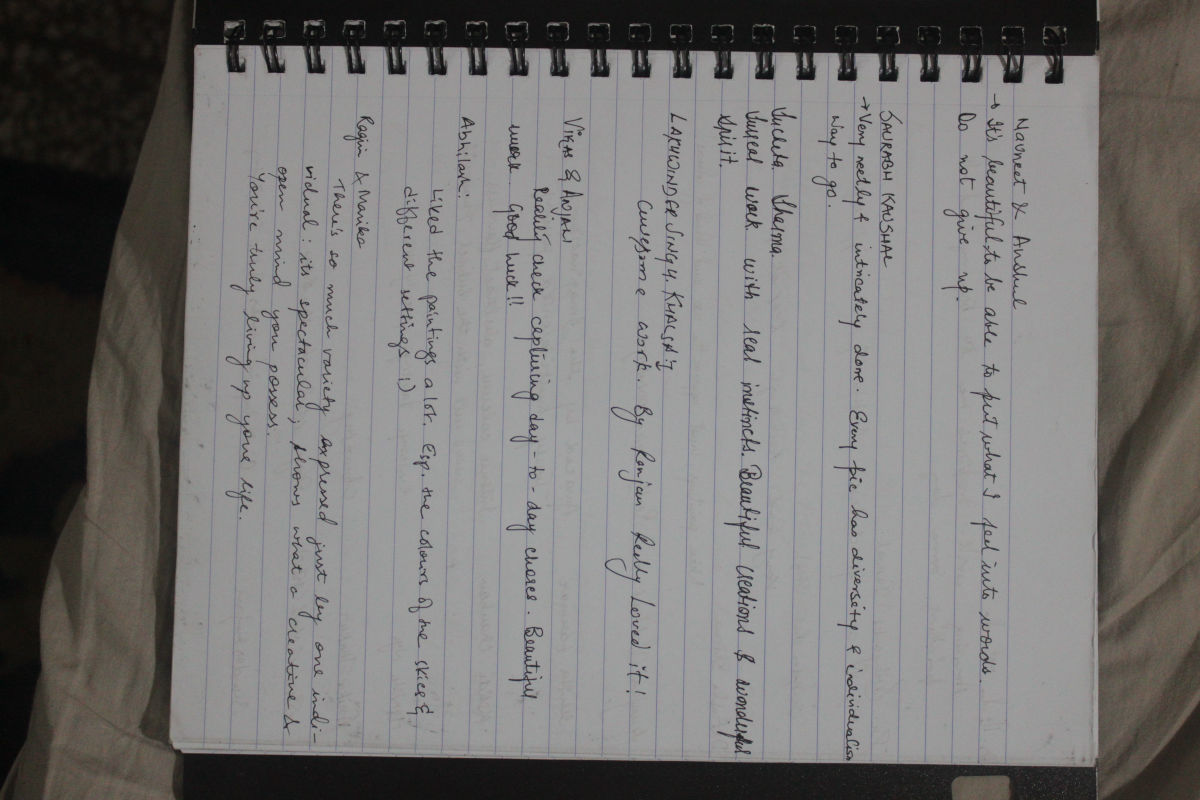 Navneet & Anshul
→ It's beautiful to be able to put what I feel into words.
Do not give up.
SAURABH KAUSHAL
→ Very neetly & intricately done. Every pic has diversity & individualism
Way to go.
Sucheta Sharma.
Surreal work with real instincts. Beautiful creations & wonderful
spirit.
LAKHWINDER SINGH KHALSA
Awesome work. By Ranjan Really Loved it!
VIKAS & ANJALI
Reality check capturing day-to-day chores. Beautiful
work. Good luck!!
Abhilash:
Liked the paintings a lot. Esp. the colours of the skies &
different settings :)
Ragin & Manika
There's so much variety expressed just by one indi-
vidual; its spectacular, shows what a creative &
open mind you possess.
You're truly living up your life.